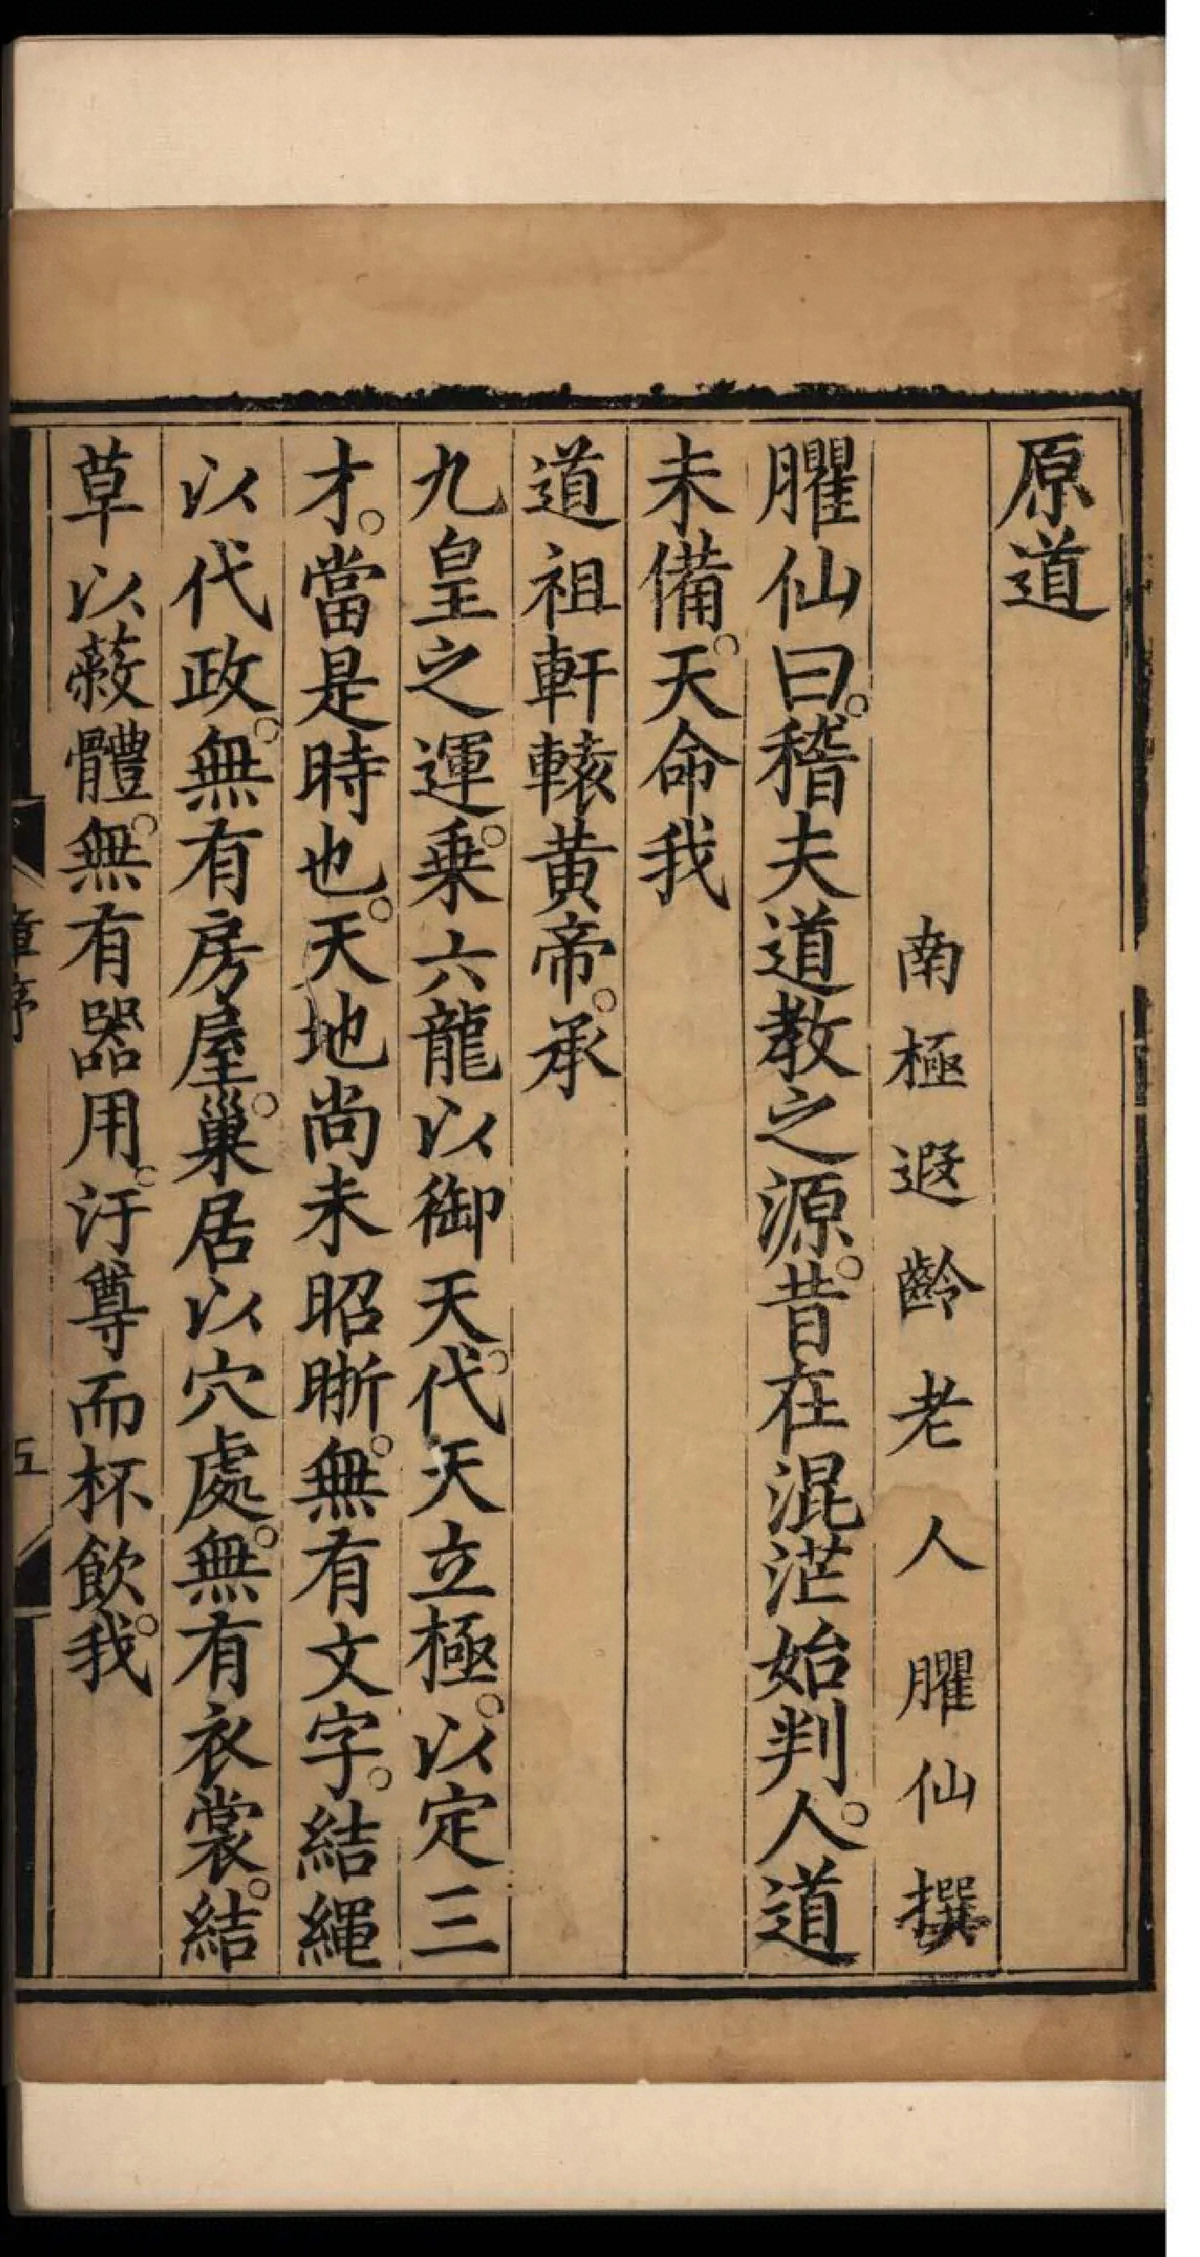 原道
南極遐齡老人臞仙撰
臞仙曰。稽夫道教之源。昔在混茫始判。人道
未備。天命我
道祖軒轅黃帝。承
九皇之運。乗六龍以御天。代天立極。以定三
才。當是時也。天地尚未昭晣。無有文字。結繩
以代政。無有房屋。巢居以穴處。無有衣裳。結
草以蔽體。無有器用。汙尊而杯飲。我
章序
五